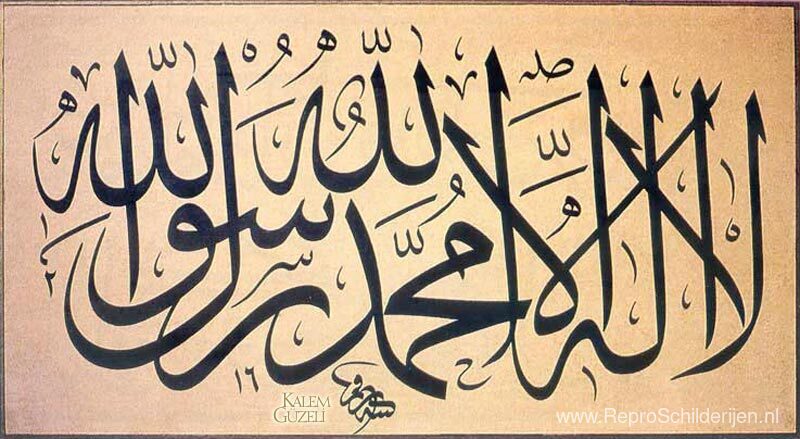 لا اله الا الله محمد رسول الله
١٦
١٢
KALEM
GÜZELİ
www.ReproSchilderijen.nl